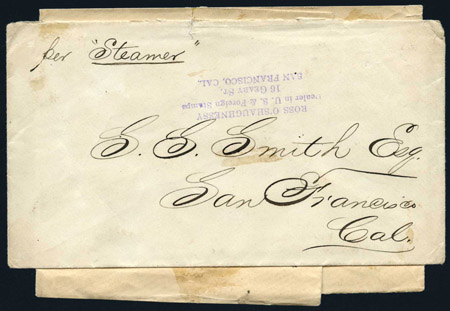 per "Steamer"
ROSS O'SHAUGHNESSY
Dealer in U. S. & Foreign Stamps
16 GEARY ST.
SAN FRANCISCO, CAL.
G. G. Smith Esq.
San Francisco
Cal.